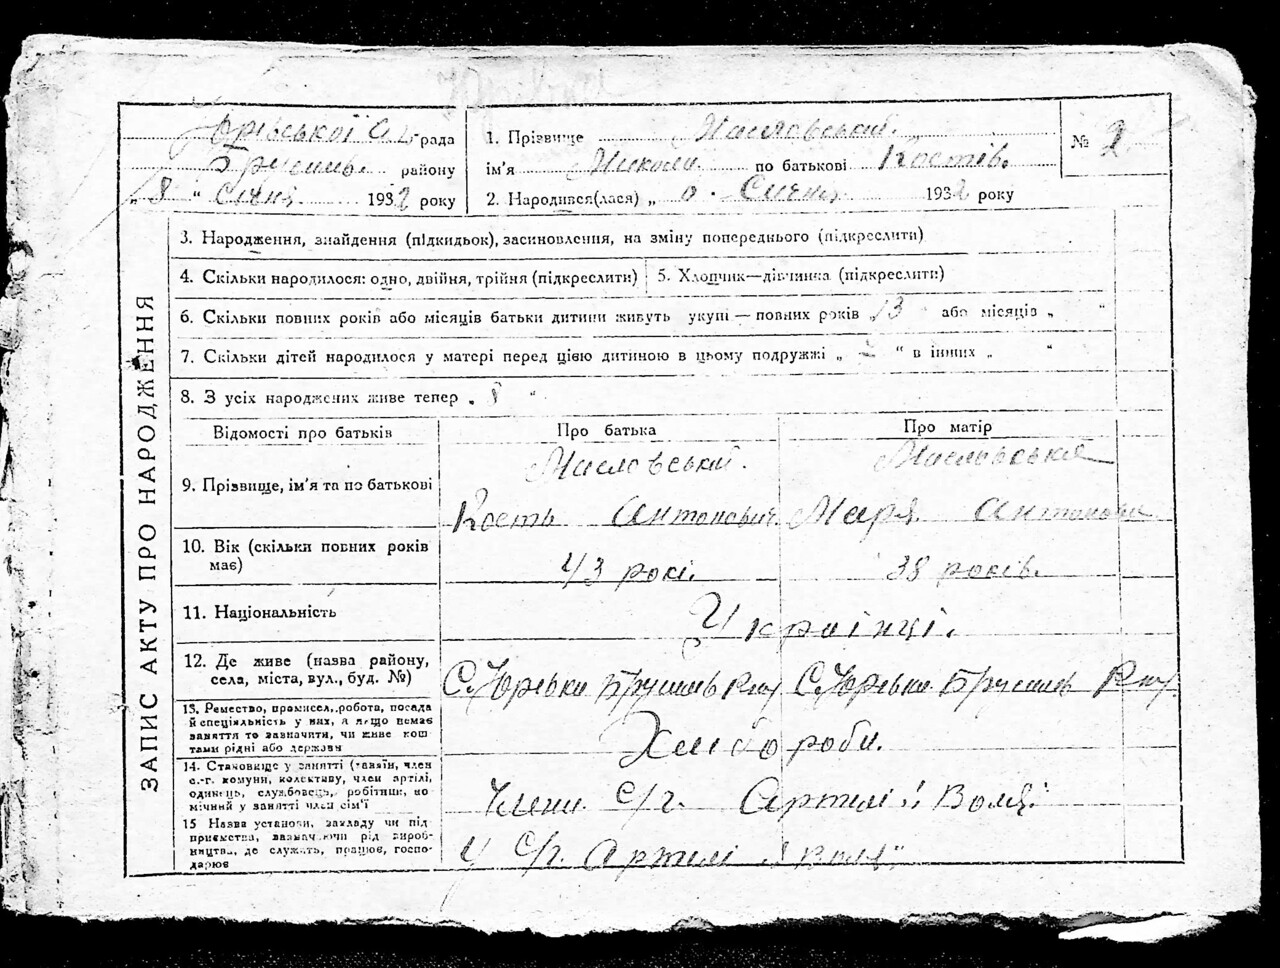 Юрівка
Юрівської С. рада
Брусилів. району
„8 “ Січня 1932 року
1. Прізвище Масловський.
ім'я Микола по батькові Костів.
2. Народився(лася) „ Січня 1932 року
№ 2
ЗАПИС АКТУ ПРО НАРОДЖЕННЯ
3. Народження, знайдення (підкидьок), засиновлення, на зміну попереднього (підкреслити)
4. Скільки народилося: одно, двійня, трійня (підкреслити)
5. Хлопчик—дівчинка (підкреслити)
6. Скільки повних років або місяців батьки дитини живуть укупі — повних років „13 “ або місяців „ “
7. Скільки дітей народилося у матері перед цією дитиною в цьому подружжі „ “ в інших „ “
8. З усіх народжених живе тепер „ 8 “
Відомості про батьків
Про батька
Про матір
9. Прізвище, ім'я та по батькові
Масловський.
Кость Антонович
Масловська
Марія Антонов
10. Вік (скільки повних років
має)
43 рокі.
38 років.
11. Національність
Українці.
12. Де живе (назва району,
села, міста, вул., буд. №)
С. Юрівка Брусилів
С. Юрівка Брусилів
13. Ремество, промисел, робота, посада
й спеціяльність у них, а якщо немає
заняття то зазначити, чи живе кош
тами рідні або держави
Хлібороби.
14. Становище у занятті (хазяїн, член
с.-г. комуни, колективу, член артілі,
одинець, службовець, робітник, по
мічний у занятті член сім'ї
Члени С/г. Артілі
15 Назва установи, закладу чи під
приємства, зазначаючи рід вироб-
ництва, де служать, працює, госпо-
дарює
У С/г. Артілі „Воля“